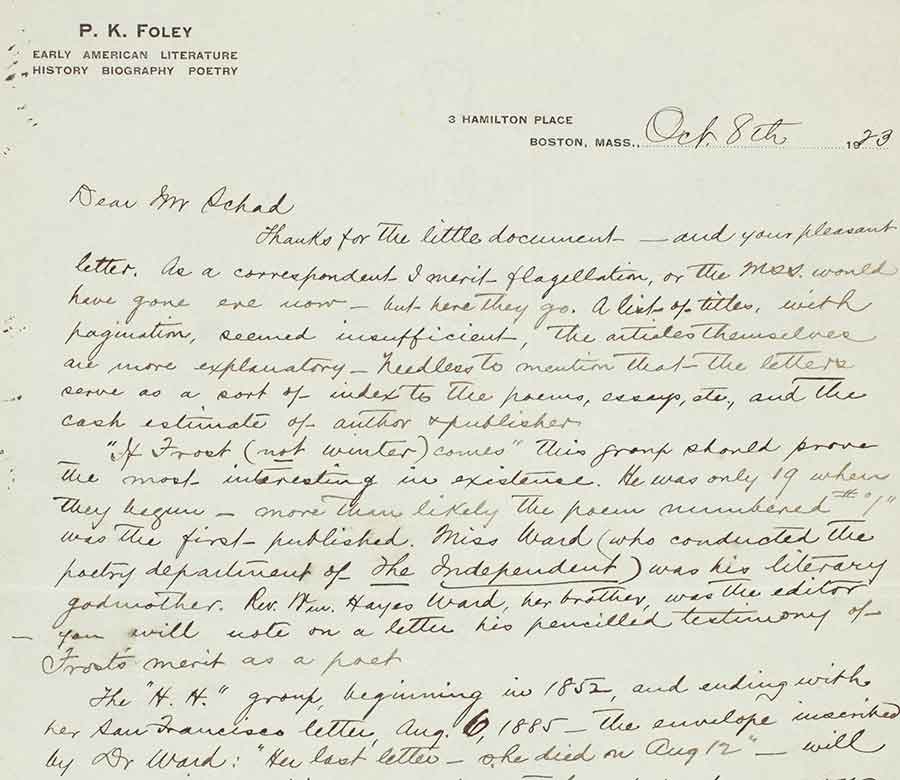 P. K. FOLEY
EARLY AMERICAN LITERATURE
HISTORY BIOGRAPHY POETRY
3 HAMILTON PLACE
BOSTON, MASS., Oct. 8th 1923
Dear Mr Schad
Thanks for the little document — and your pleasant
letter. As a correspondent I merit flagellation, or the Mss. would
have gone ere now — but here they go. A list of titles, with
pagination, seemed insufficient, the articles themselves
are more explanatory — Needless to mention that the letters
serve as a sort of index to the poems, essays, etc., and the
cash estimate of author & publisher
"If Frost (not winter) comes" this group should prove
the most interesting in existence. He was only 19 when
they begun — more than likely the poem numbered # "1"
was the first published. Miss Ward (who conducted the
poetry department of The Independent) was his literary
godmother. Rev. Wm. Hayes Ward, her brother, was the editor
— you will note on a letter his pencilled testimony of
Frost's merit as a poet
The "H. H." group, beginning in 1852, and ending with
her San Francisco letter, Aug. 6, 1885 — the envelope inscribed
by Dr Ward: "Her last letter — she died on Aug 12" — will